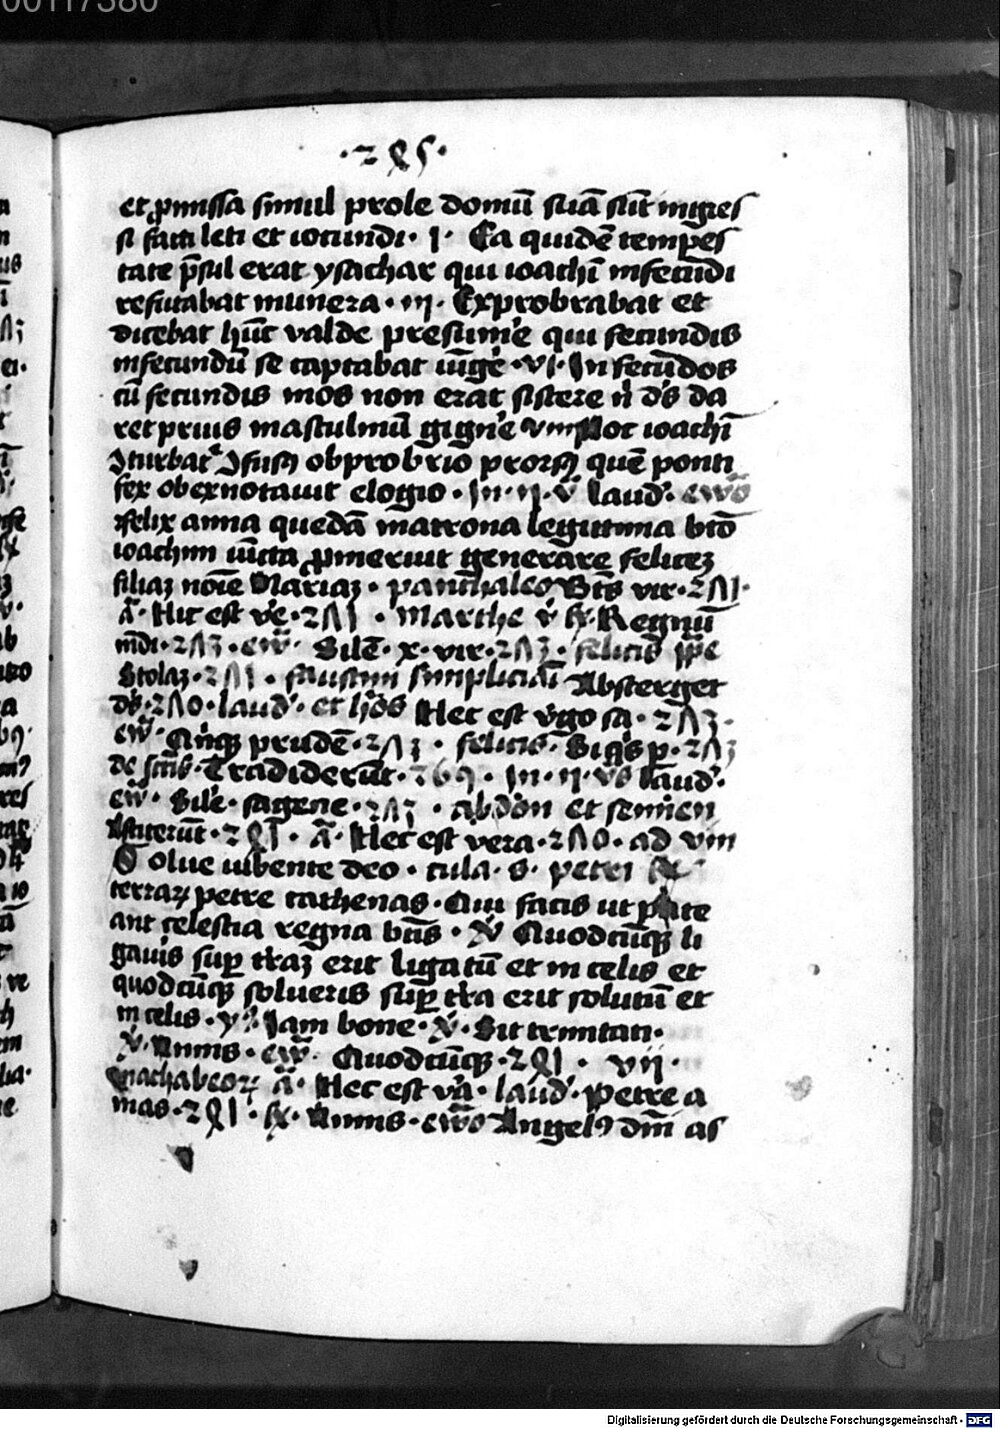 ·285·
et ꝓmissa simul prole domū suā sūt ingres
si facti leti et iocundi · I · Ea quidē tempes
tate p̄sul erat ysachar qui ioachī infecūdi
refutabat munera · III · Exprobrabat et
dicebat hūc valde presum̄e qui fecundis
infecundū se captabat iūge · VI · In fecūdos
cū fecundis mos non erat sistere n̄ ds̄ da
ret prius masculinū gign̄e VIIII Hoc ioachī
quē ponti
fex obexnotauit elogio · In · II · v̄ laud̄ · ew̄o
felix anna quedā matrona legittima bt̄o
ioachim iūcta ꝓmeruit generare felicez
filiaz noīe Mariaz · pantaleo Bt̄s vir · 241 ·
ā · Hic est ve · 241 · Marthe v̄ Regnū
mdi · 243 · ew̄ · Silē · x · vir · 243 · felicis
Stolaz · 241 · faustini simpliciāi Absterget
ds̄ · 240 · laud̄ · et h̄os Hec est v̄go sa · 243 ·
ew̄ · Qn̄qꝫ prudē · 243 · felicis · Siq̄s p · 243
de sc̄is · Tradiderūt · 269 · In · II · v̄s laud̄ ·
ew̄ · Sile · sagene · 243 · abdon et sennen
Astiterūt · 281 · ā · Hec est vera · 240 · ad vin
Solue iubente deo · cula · s · petri
terraꝝ petre cathenas · Qui facis ut pate
ant celestia regna bt̄is · v̄ Quodcūqꝫ li
gauis suꝑ tr̄az erit ligatū et in celis et
quodcūqꝫ solueris suꝑ tr̄a erit solutū et
in celis · Iam bone · v̄ · Sit trinitati ·
Annis · ew̄ · Quodcūqꝫ · 281 · VII ·
Machabeoꝝ ā · Hec est v̄a · laud̄ · petre a
mas · 281 · Annis · ew̄o Angelꝰ dn̄i as
Digitalisierung gefördert durch die Deutsche Forschungsgemeinschaft · DFG